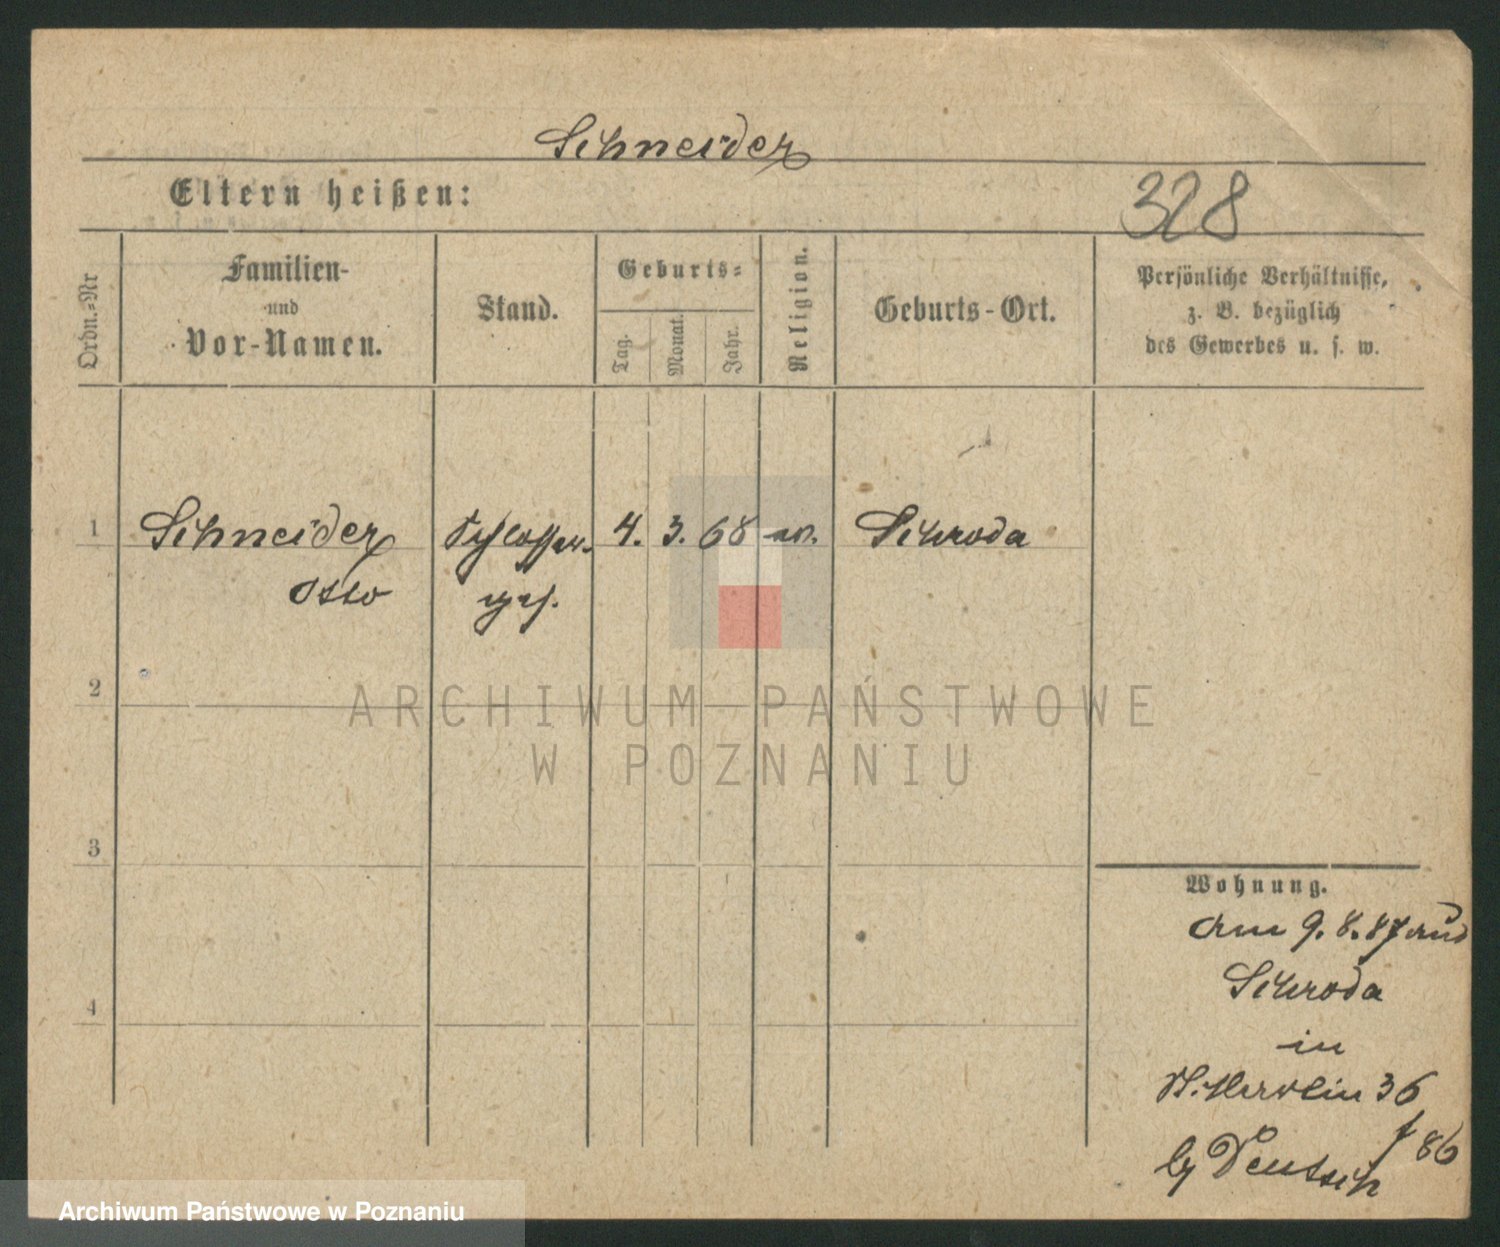 Schneider
Eltern heißen:
328
Ordn.-Nr
Familien-
und
Vor-Namen.
Stand.
Geburts-
Tag.
Monat.
Jahr.
Religion.
Geburts-Ort.
Persönliche Verhältnisse,
z. B. bezüglich
des Gewerbes u. s. w.
1
Schneider Schlosser- 4. 3. 68 ev. Schroda
Otto ges.
2
3
4
ARCHIWUM PAŃSTWOWE
W POZNANIU
Wohnung.
am 9. 8. 87 aus
Schroda
in
St. Martin 36
f 86
by Deutsch
Archiwum Państwowe w Poznaniu